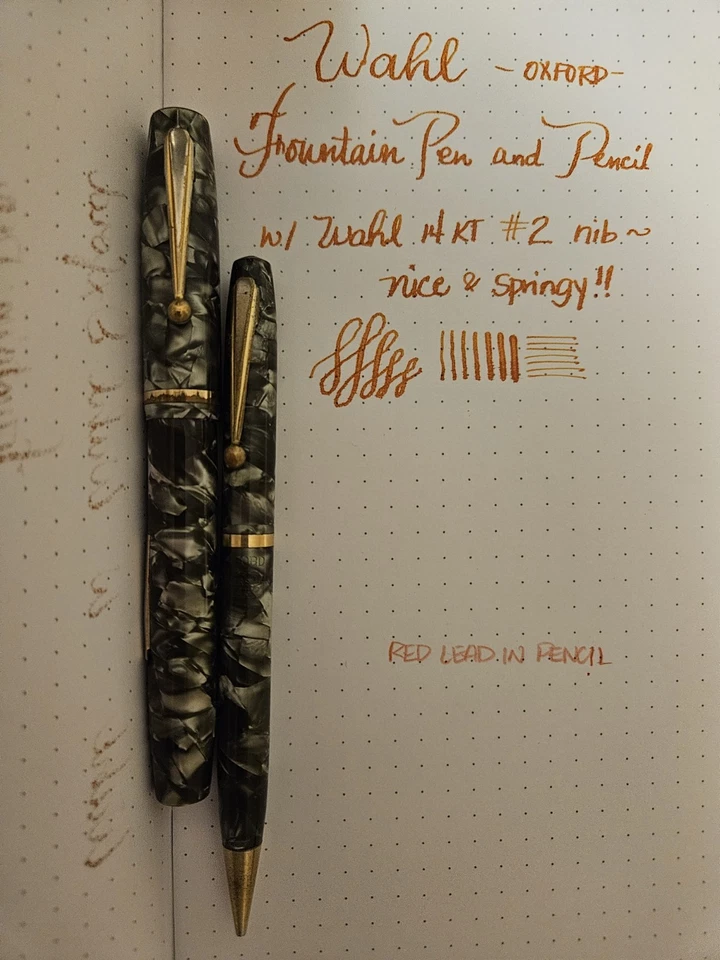 Wahl - OXFORD -
Fountain Pen and Pencil
w/ Wahl 14 KT #2 nib ~
nice & springy!!
RED LEAD IN PENCIL